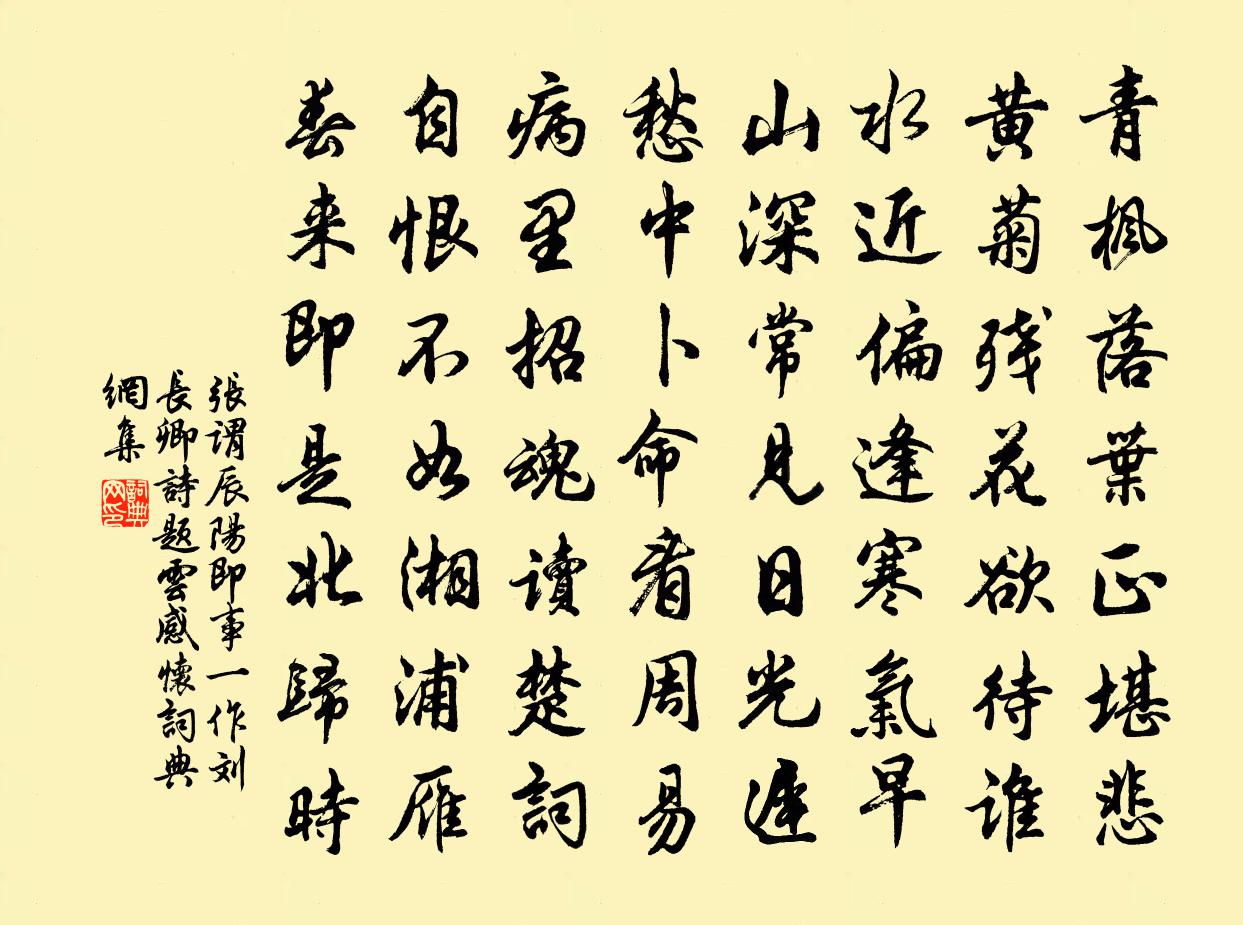 青枫落葉正堪悲
黄菊残花欲待谁
水近偏逢寒氣早
山深常見日光遲
愁中卜命看周易
病里招魂讀楚詞
自恨不如湘浦雁
春来即是北歸時
張謂辰陽即事一作刘
長卿詩題雲感懷詞典
網集
詞典
网印